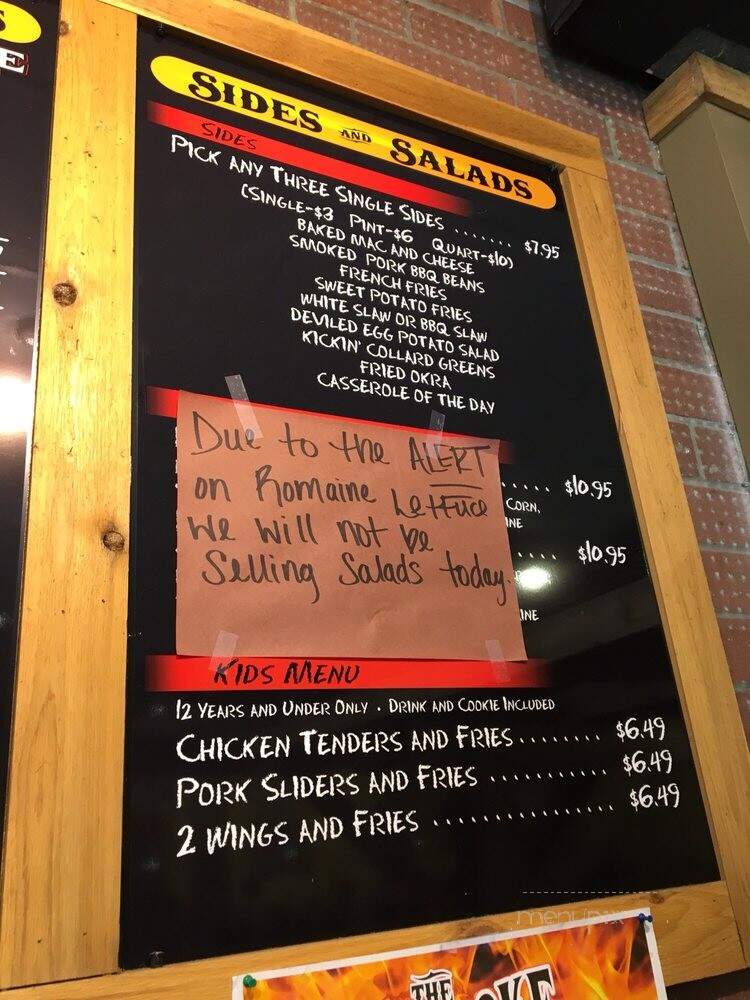 SIDES AND SALADS
SIDES
PICK ANY THREE SINGLE SIDES ....... $7.95
(SINGLE-$3 PINT-$6 QUART-$10)
BAKED MAC AND CHEESE
SMOKED PORK BBQ BEANS
FRENCH FRIES
SWEET POTATO FRIES
WHITE SLAW OR BBQ SLAW
DEVILED EGG POTATO SALAD
KICKIN' COLLARD GREENS
FRIED OKRA
CASSEROLE OF THE DAY
Due to the ALERT
on Romaine Lettuce
We will not be
Selling Salads today.
..... $10.95
CORN,
INE
.... $10.95
INE
KIDS MENU
12 YEARS AND UNDER ONLY . DRINK AND COOKIE INCLUDED
CHICKEN TENDERS AND FRIES........ $6.49
PORK SLIDERS AND FRIES ........... $6.49
2 WINGS AND FRIES ................. $6.49
menupix
THE